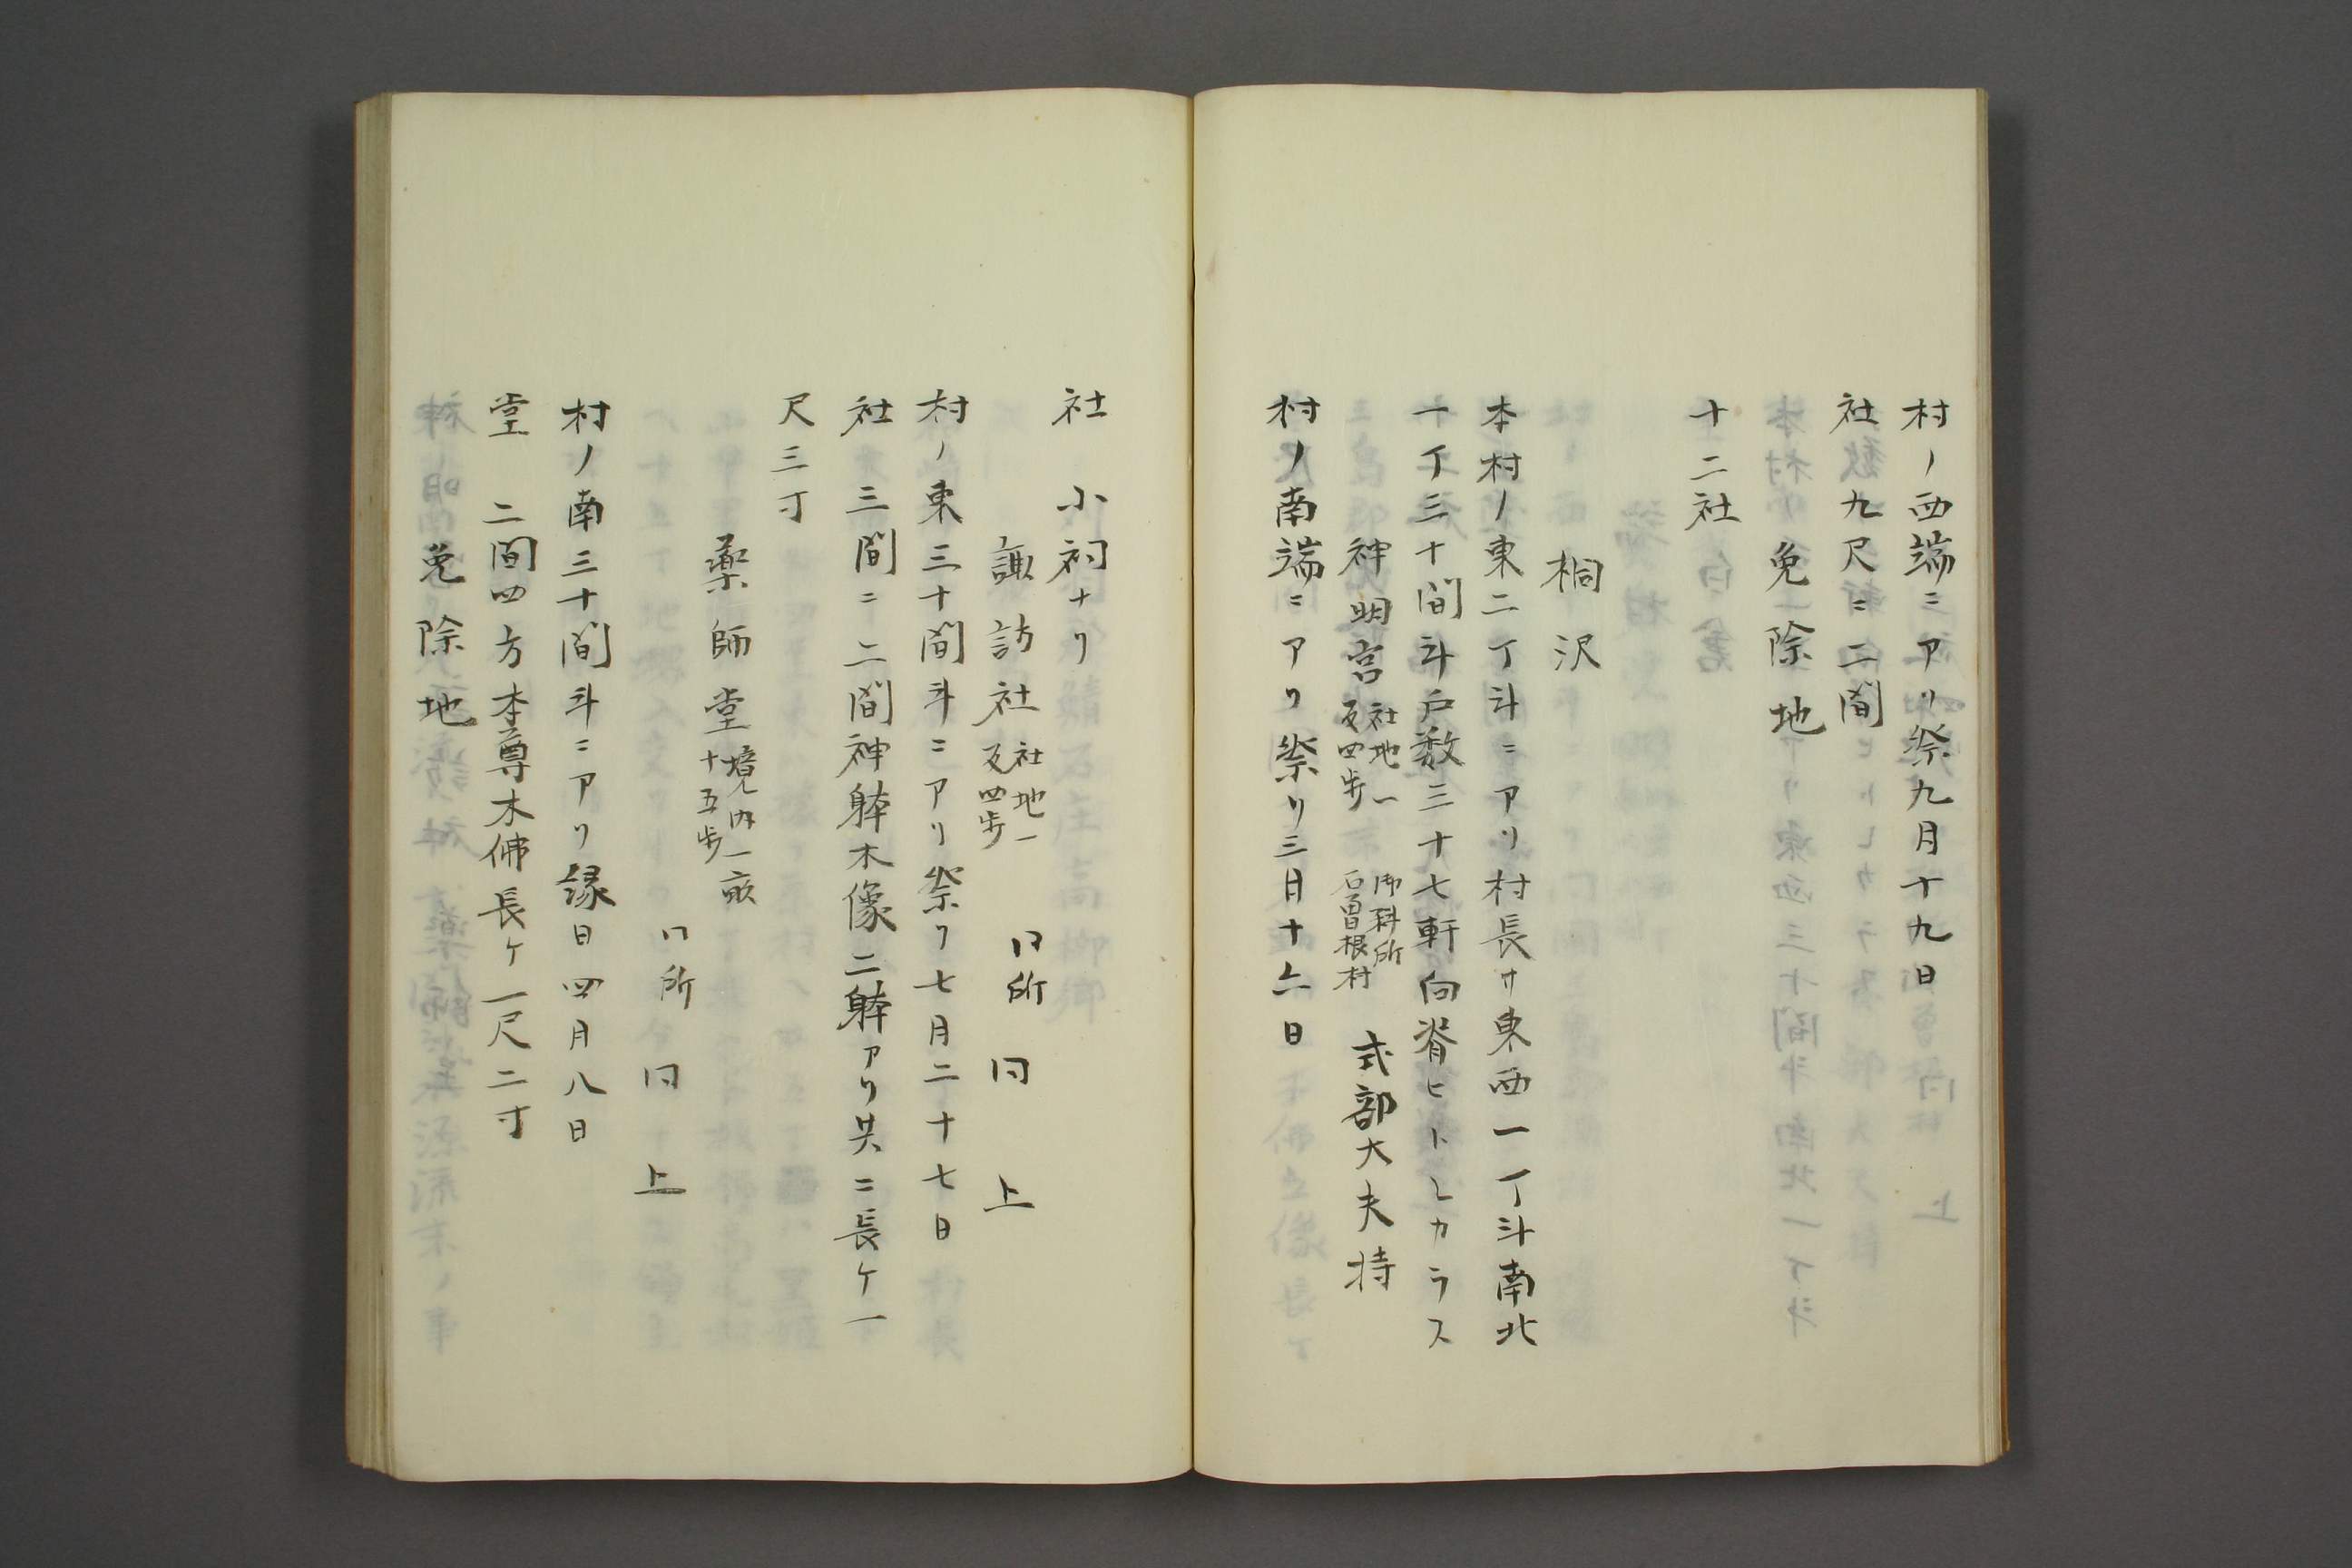 村ノ西端ニアリ祭九月十九日
社九尺ニ二間
免除地
十二社
桐沢
本村ノ東二丁斗ニアリ村長サ東西一丁斗南北
一丁三十間斗戸数三十七軒向背ヒトシカラス
神明宮 社地一
反四歩 御料所
石曽根村 式部大夫持
村ノ南端ニアリ祭リ三月十六日
社 小祠ナリ
諏訪社 社地一
反四歩 同所 同上
村ノ東三十間斗ニアリ祭リ七月二十七日
社 三間ニ二間神躰木像二躰アリ共ニ長ケ一
尺三寸
薬師堂 境内一畝
十五歩 同所 同上
村ノ南三十間斗ニアリ縁日四月八日
堂 二間四方本尊木佛長ケ一尺二寸
免除地